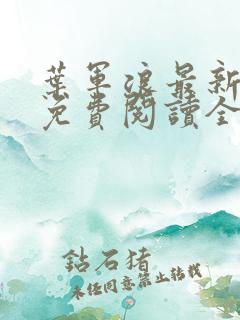 葉軍浪最新
免費閱讀全
鈷石猪
未經同意禁止轉載